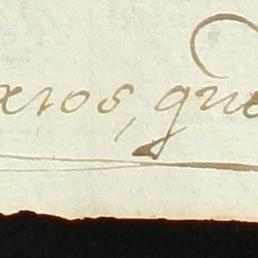 xros, que